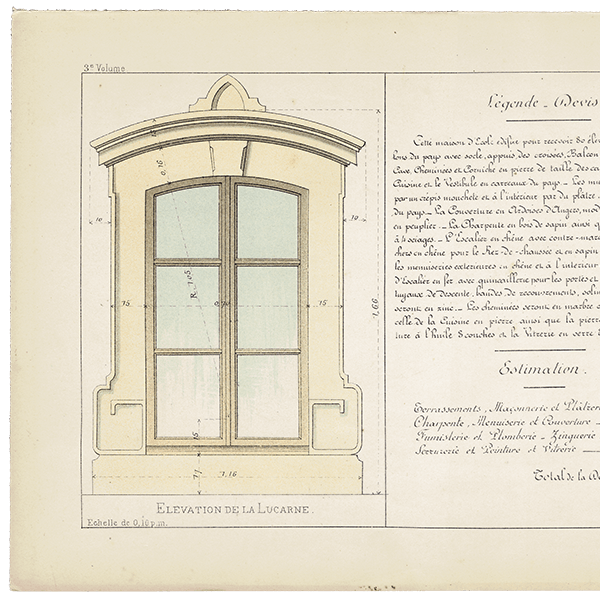 3e Volume
10
16
0,16
10
R. 1,05
15
0,70
15
1,66
15
17
1,16
ELEVATION DE LA LUCARNE.
Echelle de 0,10 p.m.
Légende _ Devis
Cette maison d'Ecole edifiée pour recevoir 80 élè
lons du pays avec socle, appuis, des croisées, Balcon
Cave, Cheminées et Corniche en pierre de taille des ca
Cuisine et le Vestibule en carreaux du pays _ Les mu
par un crépis moucheté et à l'intérieur par du plâtre
du pays _ La Couverture en Ardoises d'Angers, mod
en peuplier. _ La Charpente en bois de sapin ainsi q
à 4 sciages. _ L'Escalier en chêne avec contre-mar
chers en chêne pour le Rez-de-chaussée et en sapin
les menuiseries extérieures en chêne et à l'intérieur
d'Escalier en fer avec quincaillerie pour les portes et
tuyaux de descente, bandes de recouvrements, solin
seront en zinc. _ Les cheminées seront en marbre
celle de la Cuisine en pierre ainsi que la pierre
ture à l'huile 3 couches et la Vitrerie en verre
Estimation.
Terrassements, Maçonnerie et Plâtrer
Charpente, Menuiserie et Couverture _
Fumisterie et Plomberie _ Zinguerie
Serrurerie et Peinture et Vitrerie _
Total de la De